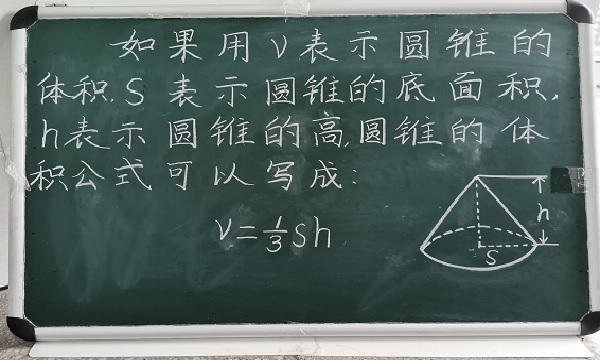 如果用V表示圆锥的
体积,S表示圆锥的底面积,
h表示圆锥的高,圆锥的体
积公式可以写成:
V=1/3Sh
h
S